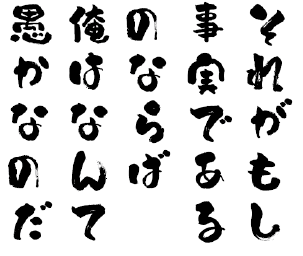 それがもし
事実である
のならば
俺はなんて
愚かなのだ